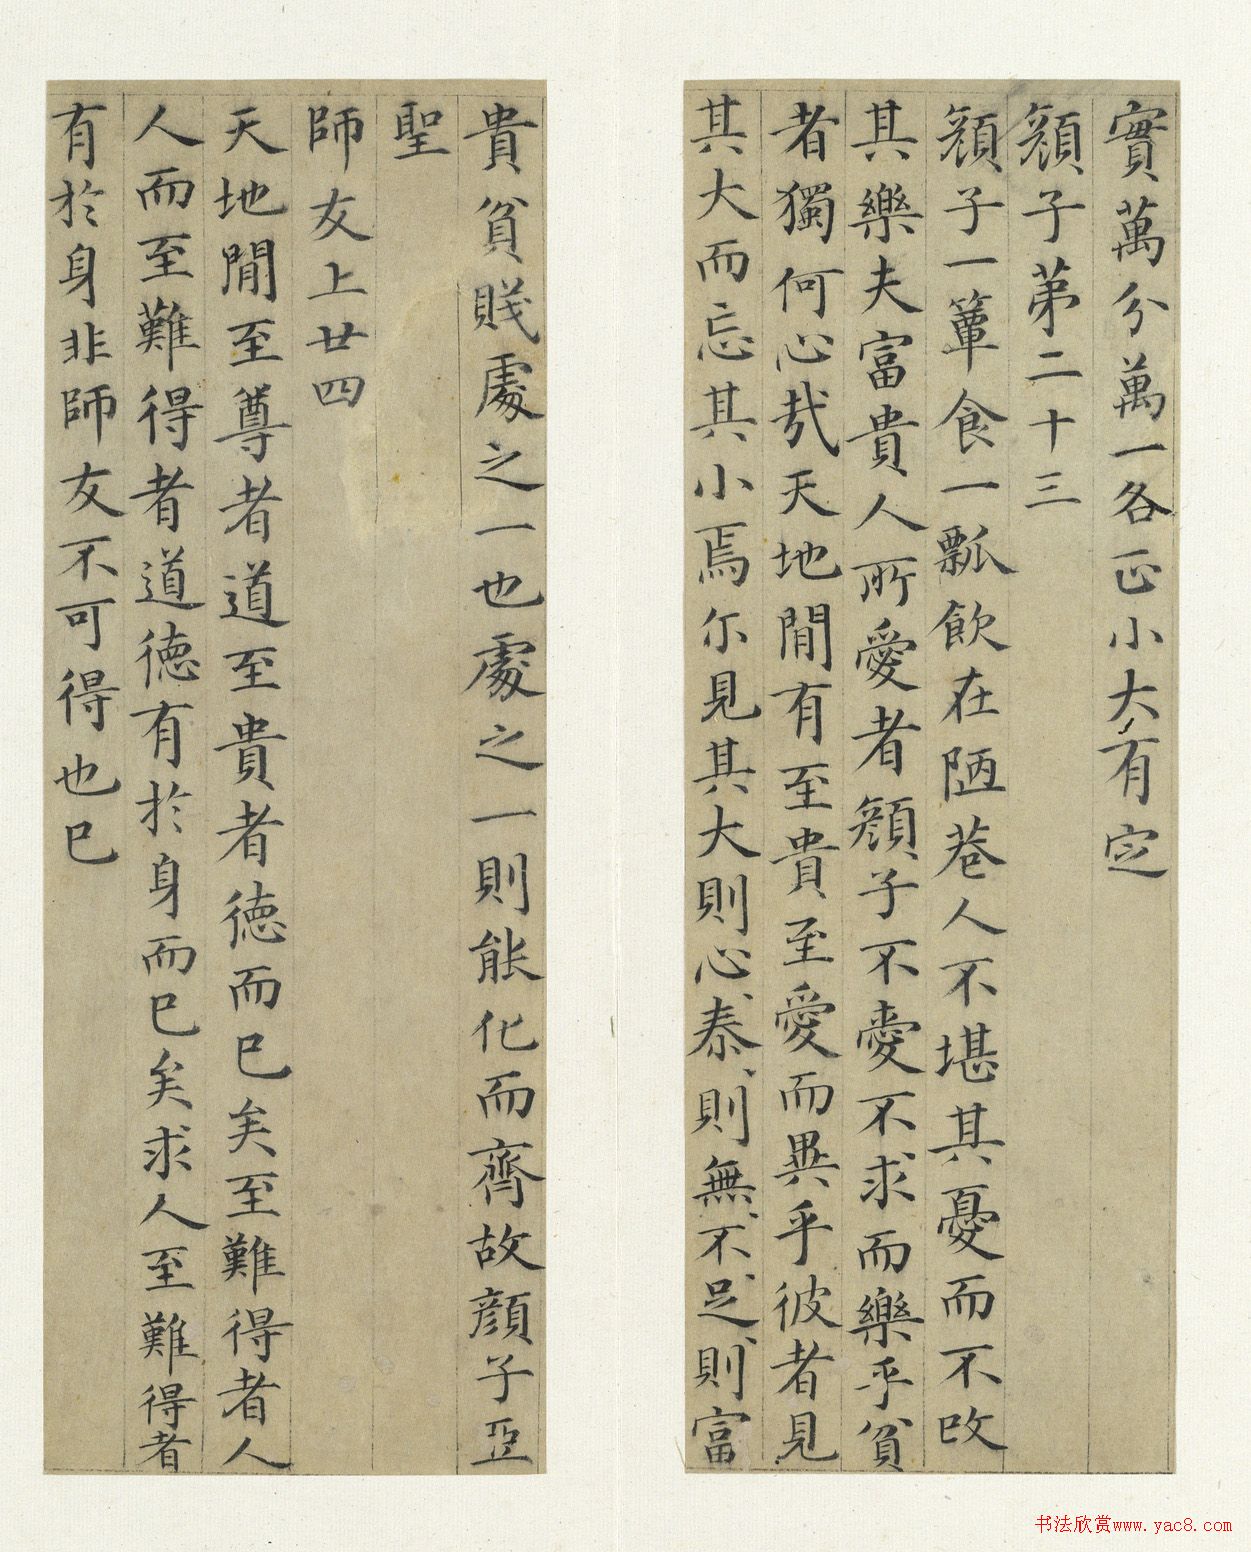 實萬分萬一各正小大有定
顔子苐二十三
顔子一簞食一瓢飲在陋巷人不堪其憂而不改
其樂夫富貴人所愛者顔子不愛不求而樂乎貧
者獨何心㢤天地閒有至貴至愛而異乎彼者見
其大而忘其小焉尒見其大則心泰、則無、不、足、則富
貴貧賤處之一也處之一則能化而齊故顔子亞
聖
師友上廿四
天地閒至尊者道至貴者德而已矣至難得者人
人而至難得者道德有於身而已矣求人至難得者
有於身非師友不可得也已
书法欣赏www.yac8.com